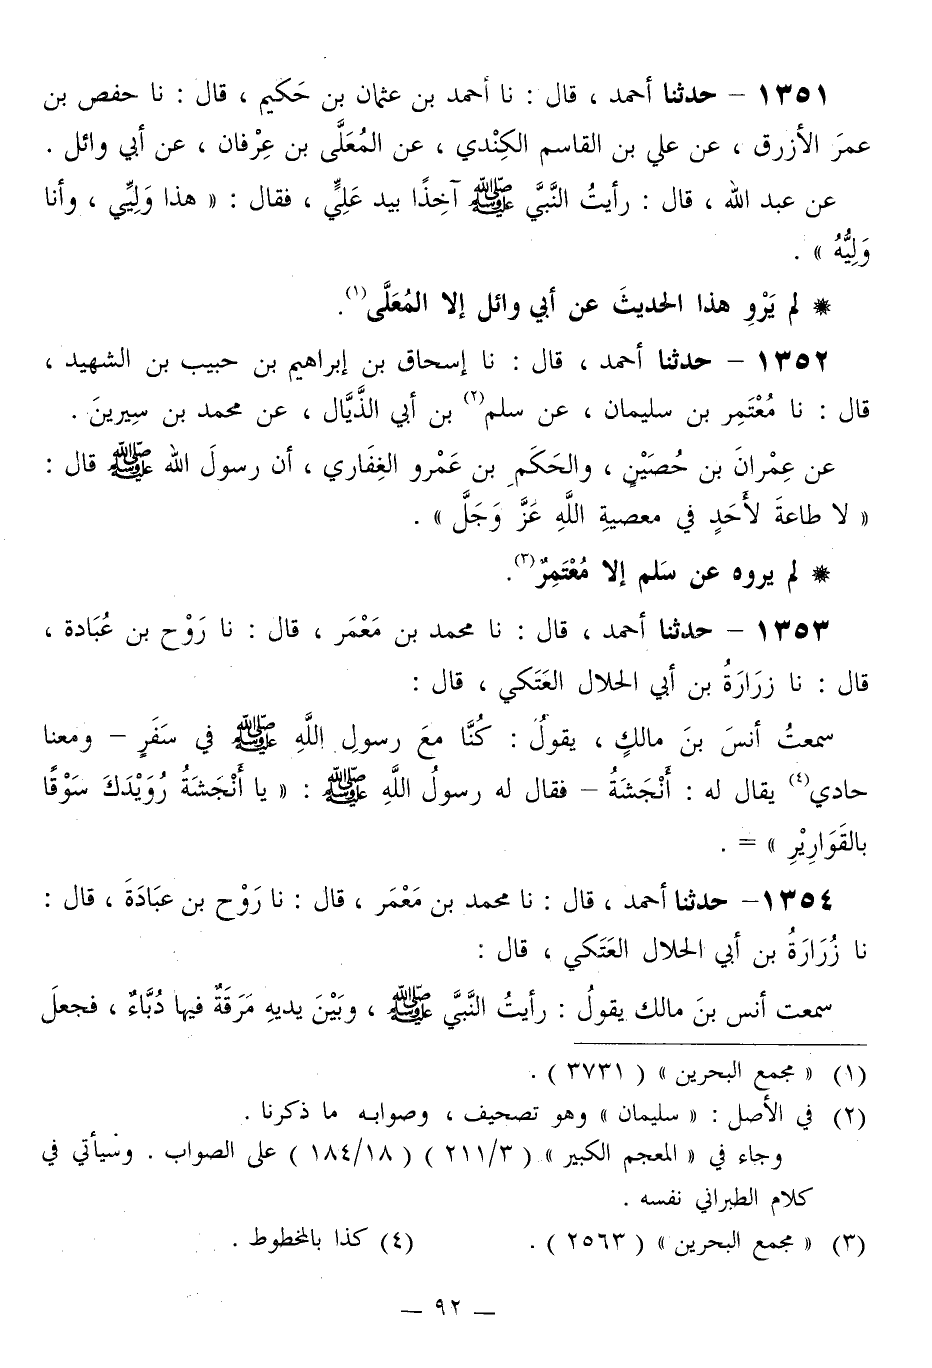 ١٣٥١ – حدثنا أحمد ، قال : نا أحمد بن عثمان بن حَكيم ، قال : نا حفص بن
عمرَ الأزرق ، عن علي بن القاسم الكِنْدي ، عن المُعَلَّى بن عِرْفان ، عن أبي وائل .
عن عبد الله ، قال : رأيتُ النَّبيَّ ﷺ آخِذًا بيد عَلِيٍّ ، فقال : « هذا وَلِيِّي ، وأنا
وَلِيُّهُ » .
* لم يَرْوِ هذا الحديثَ عن أبي وائل إلا المُعَلَّى(١).
١٣٥٢ – حدثنا أحمد ، قال : نا إسحاق بن إبراهيم بن حبيب بن الشهيد ،
قال : نا مُعْتَمِر بن سليمان ، عن سلم(٢) بن أبي الذَّيَّال ، عن محمد بن سِيرينَ .
عن عِمْرانَ بن حُصَيْنٍ ، والحَكَمِ بن عَمْرو الغِفَاري ، أن رسولَ الله ﷺ قال :
« لا طاعةَ لأَحَدٍ في معصيةِ اللَّهِ عَزَّ وَجَلَّ » .
* لم يروه عن سَلم إلا مُعْتَمِرٌ(٣).
١٣٥٣ – حدثنا أحمد ، قال : نا محمد بن مَعْمَر ، قال : نا رَوْح بن عُبَادة ،
قال : نا زرَارَةُ بن أبي الحلال العَتَكي ، قال :
سمعتُ أنسَ بنَ مالكٍ ، يقولُ : كُنَّا معَ رسولِ اللَّهِ ﷺ في سَفَرٍ – ومعنا
حادي(٤) يقال له : أَنْجَشَةُ – فقال له رسولُ اللَّهِ ﷺ : « يا أَنْجَشَةُ رُوَيْدَكَ سَوْقًا
بالقَوَارِيْرِ » = .
١٣٥٤– حدثنا أحمد ، قال : نا محمد بن مَعْمَر ، قال : نا رَوْح بن عبَادَةَ ، قال :
نا زُرَارَةُ بن أبي الحلال العَتَكي ، قال :
سمعت أنس بنَ مالك يقولُ : رأيتُ النَّبيَّ ﷺ ، وبَيْنَ يديهِ مَرَقَةٌ فيها دُبَّاءٌ ، فجعلَ
(١) « مجمع البحرين » ( ٣٧٣١ ) .
(٢) في الأصل : « سليمان » وهو تصحيف ، وصوابه ما ذكرنا .
وجاء في « المعجم الكبير » ( ٢١١/٣ ) ( ١٨٤/١٨ ) على الصواب . وسيأتي في
كلام الطبراني نفسه .
(٣) « مجمع البحرين » ( ٢٥٦٣ ) . (٤) كذا بالمخطوط .
– ٩٢ –